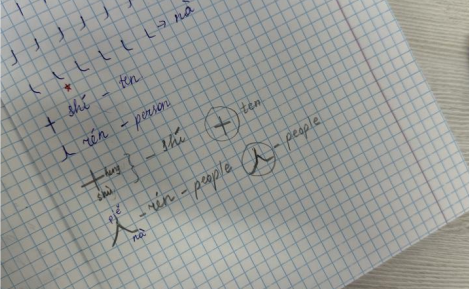 → nà
十 shí - ten
人 rén - person
十 héng shù } - shí 十 ten
人 piě nà - rén - people 人 - people